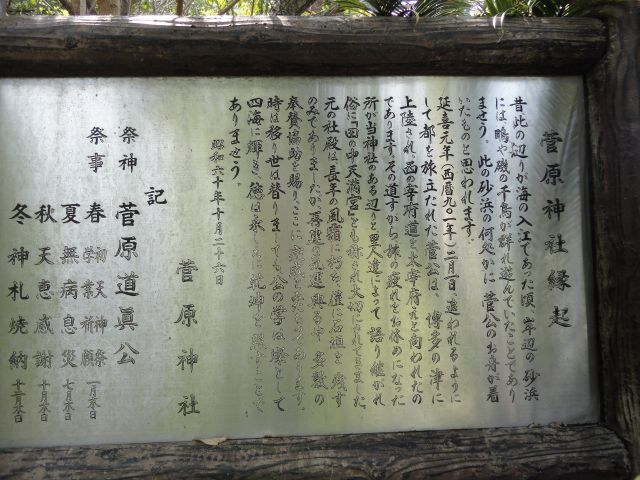 菅原神社縁起
昔此の辺りが海の入江であった頃、岸辺の砂浜
には、鴫や磯の千鳥が群れ遊んでいたことであり
ませう。此の砂浜の何処かに菅公のお舟が着
いたものと思われます。
延喜元年(西暦九〇一年)二月一日、追われるように
して都を旅立たれた菅公は、博多の津に
上陸され、西の宰府道を太宰府えと向われたの
であります。その道すがら旅の疲れをお休めになった
所が当神社のある辺りと里人達によって語り継がれ
俗に「田の中天満宮」とも称され大切にされてきました。
元の社殿は、長年の風霜に朽ち、僅に石垣を残す
のみでありましたが、再建の気運興る中多数の
奉賛協助を賜り、ここに
時は移り世は替りましても、公の誉は燈として
四海に輝き、徳は永しえに乾坤を照すことで
ありませう。
昭和六十年十月二十六日
菅原神社
記
祭神 菅原道眞公
祭事 春 初天神祭 学業祈願 一月末日
夏 無病息災 七月末日
秋 天恵感謝 十月末日
冬 神札焼納 十二月末日